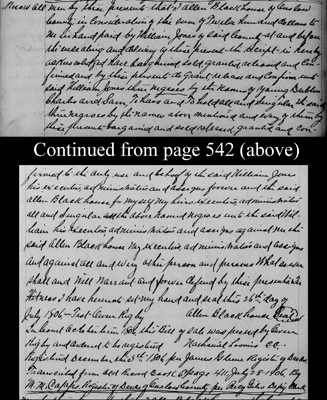 Know all men by these presents that I Allen Blackhouse of Onslow
having in consideration of the sum of Twelve Hundred Dollars to
me in hand paid by William Jones of said County at and before
the sealing and delivery of these presents the Receipt is hereby
acknowledged have bargained sold granted released and con-
firmed and by these presents do Grant release and confirm unto
said William Jones three negroes by the names of young
Charles and Sam To have and To hold all and singular the said
three negroes by the names above mentioned and every of them by
these presents bargained and sold released, granted and con-
Continued from page 542 (above)
firmed to the only use and behoof of the said William Jones
his executors, administrators and assigns forever and the said
Allen Blackhouse for my self my heirs executors, administrators
all and singular the above named negroes unto the said Wil-
liam his executors, administrators and assigns against me the
said Allen Blackhouse my executors, administrators and assigns
and against all and every other person and persons Whatsoever
shall and Will Warrant and forever defend by these presents in
Witness I have hereunto set my hand and seal this 26th day of
July 1806 - Test Owen Rigby Allen Blackhouse Seal
In Court October term 1806, this Bill of Sale was proved by Owen
Rigby and ordered to be registered Nathaniel Loomis CC
Registered December the 5th 1806, per James Glenn Register
Transcribed from old Book page 411 July 1906 By
M. M. Capps, Register of Deeds Onslow County per